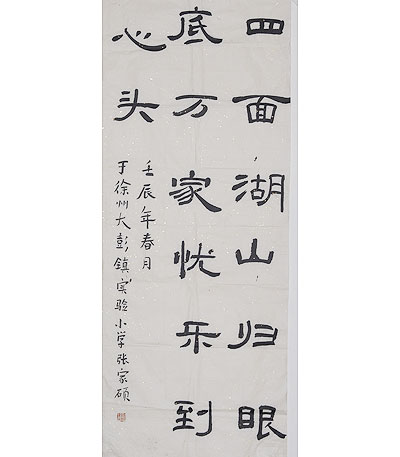 四面湖山归眼
底万家忧乐到
心头
壬辰年春月
于徐州大彭镇实验小学张家硕